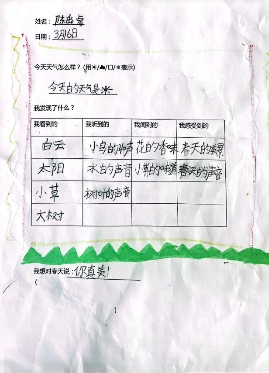 姓名：陈
日期：3月16日
今天天气怎么样？（用☀/☁/口/❄表示）
今天的天气是☀
我发现了什么？
我看到的 我听到的 我闻到的 我感受到的
白云 小鸟的叫声 花的香味 春天的
太阳 水的声音 小草的味道 春天的声音
小草 树叶的声音
大树
我想对春天说：你真美！
（ ）